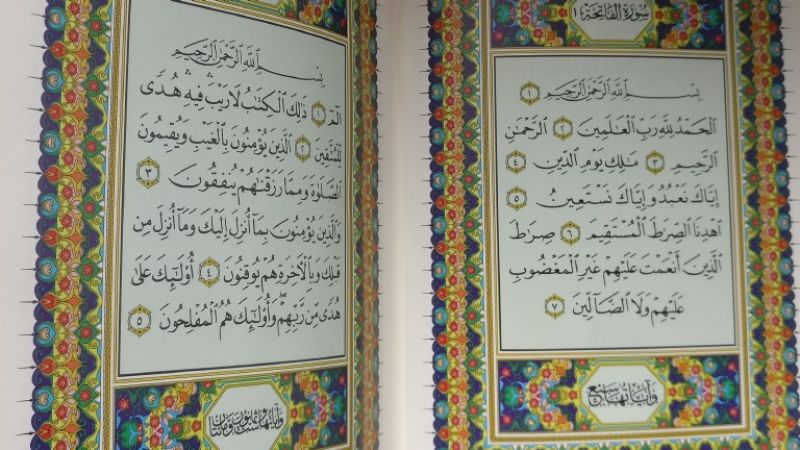 سُورَةُ الفَاتِحَة ١
بِسْمِ ٱللَّهِ ٱلرَّحْمَٰنِ ٱلرَّحِيمِ ١
ٱلْحَمْدُ لِلَّهِ رَبِّ ٱلْعَٰلَمِينَ ٢ ٱلرَّحْمَٰنِ
ٱلرَّحِيمِ ٣ مَٰلِكِ يَوْمِ ٱلدِّينِ ٤
إِيَّاكَ نَعْبُدُ وَإِيَّاكَ نَسْتَعِينُ ٥
ٱهْدِنَا ٱلصِّرَٰطَ ٱلْمُسْتَقِيمَ ٦ صِرَٰطَ
ٱلَّذِينَ أَنْعَمْتَ عَلَيْهِمْ غَيْرِ ٱلْمَغْضُوبِ
عَلَيْهِمْ وَلَا ٱلضَّآلِّينَ ٧
وَآيَاتُهَا سَبْعٌ
بِسْمِ ٱللَّهِ ٱلرَّحْمَٰنِ ٱلرَّحِيمِ
الٓمٓ ١ ذَٰلِكَ ٱلْكِتَٰبُ لَا رَيْبَۛ فِيهِۛ هُدًى
لِّلْمُتَّقِينَ ٢ ٱلَّذِينَ يُؤْمِنُونَ بِٱلْغَيْبِ وَيُقِيمُونَ
ٱلصَّلَوٰةَ وَمِمَّا رَزَقْنَٰهُمْ يُنفِقُونَ ٣
وَٱلَّذِينَ يُؤْمِنُونَ بِمَآ أُنزِلَ إِلَيْكَ وَمَآ أُنزِلَ مِن
قَبْلِكَ وَبِٱلْءَاخِرَةِ هُمْ يُوقِنُونَ ٤ أُو۟لَٰٓئِكَ عَلَىٰ
هُدًى مِّن رَّبِّهِمْۖ وَأُو۟لَٰٓئِكَ هُمُ ٱلْمُفْلِحُونَ ٥
وَآيَاتُهَا سِتٌّ وَثَمَانُونَ وَمِائَتَانِ